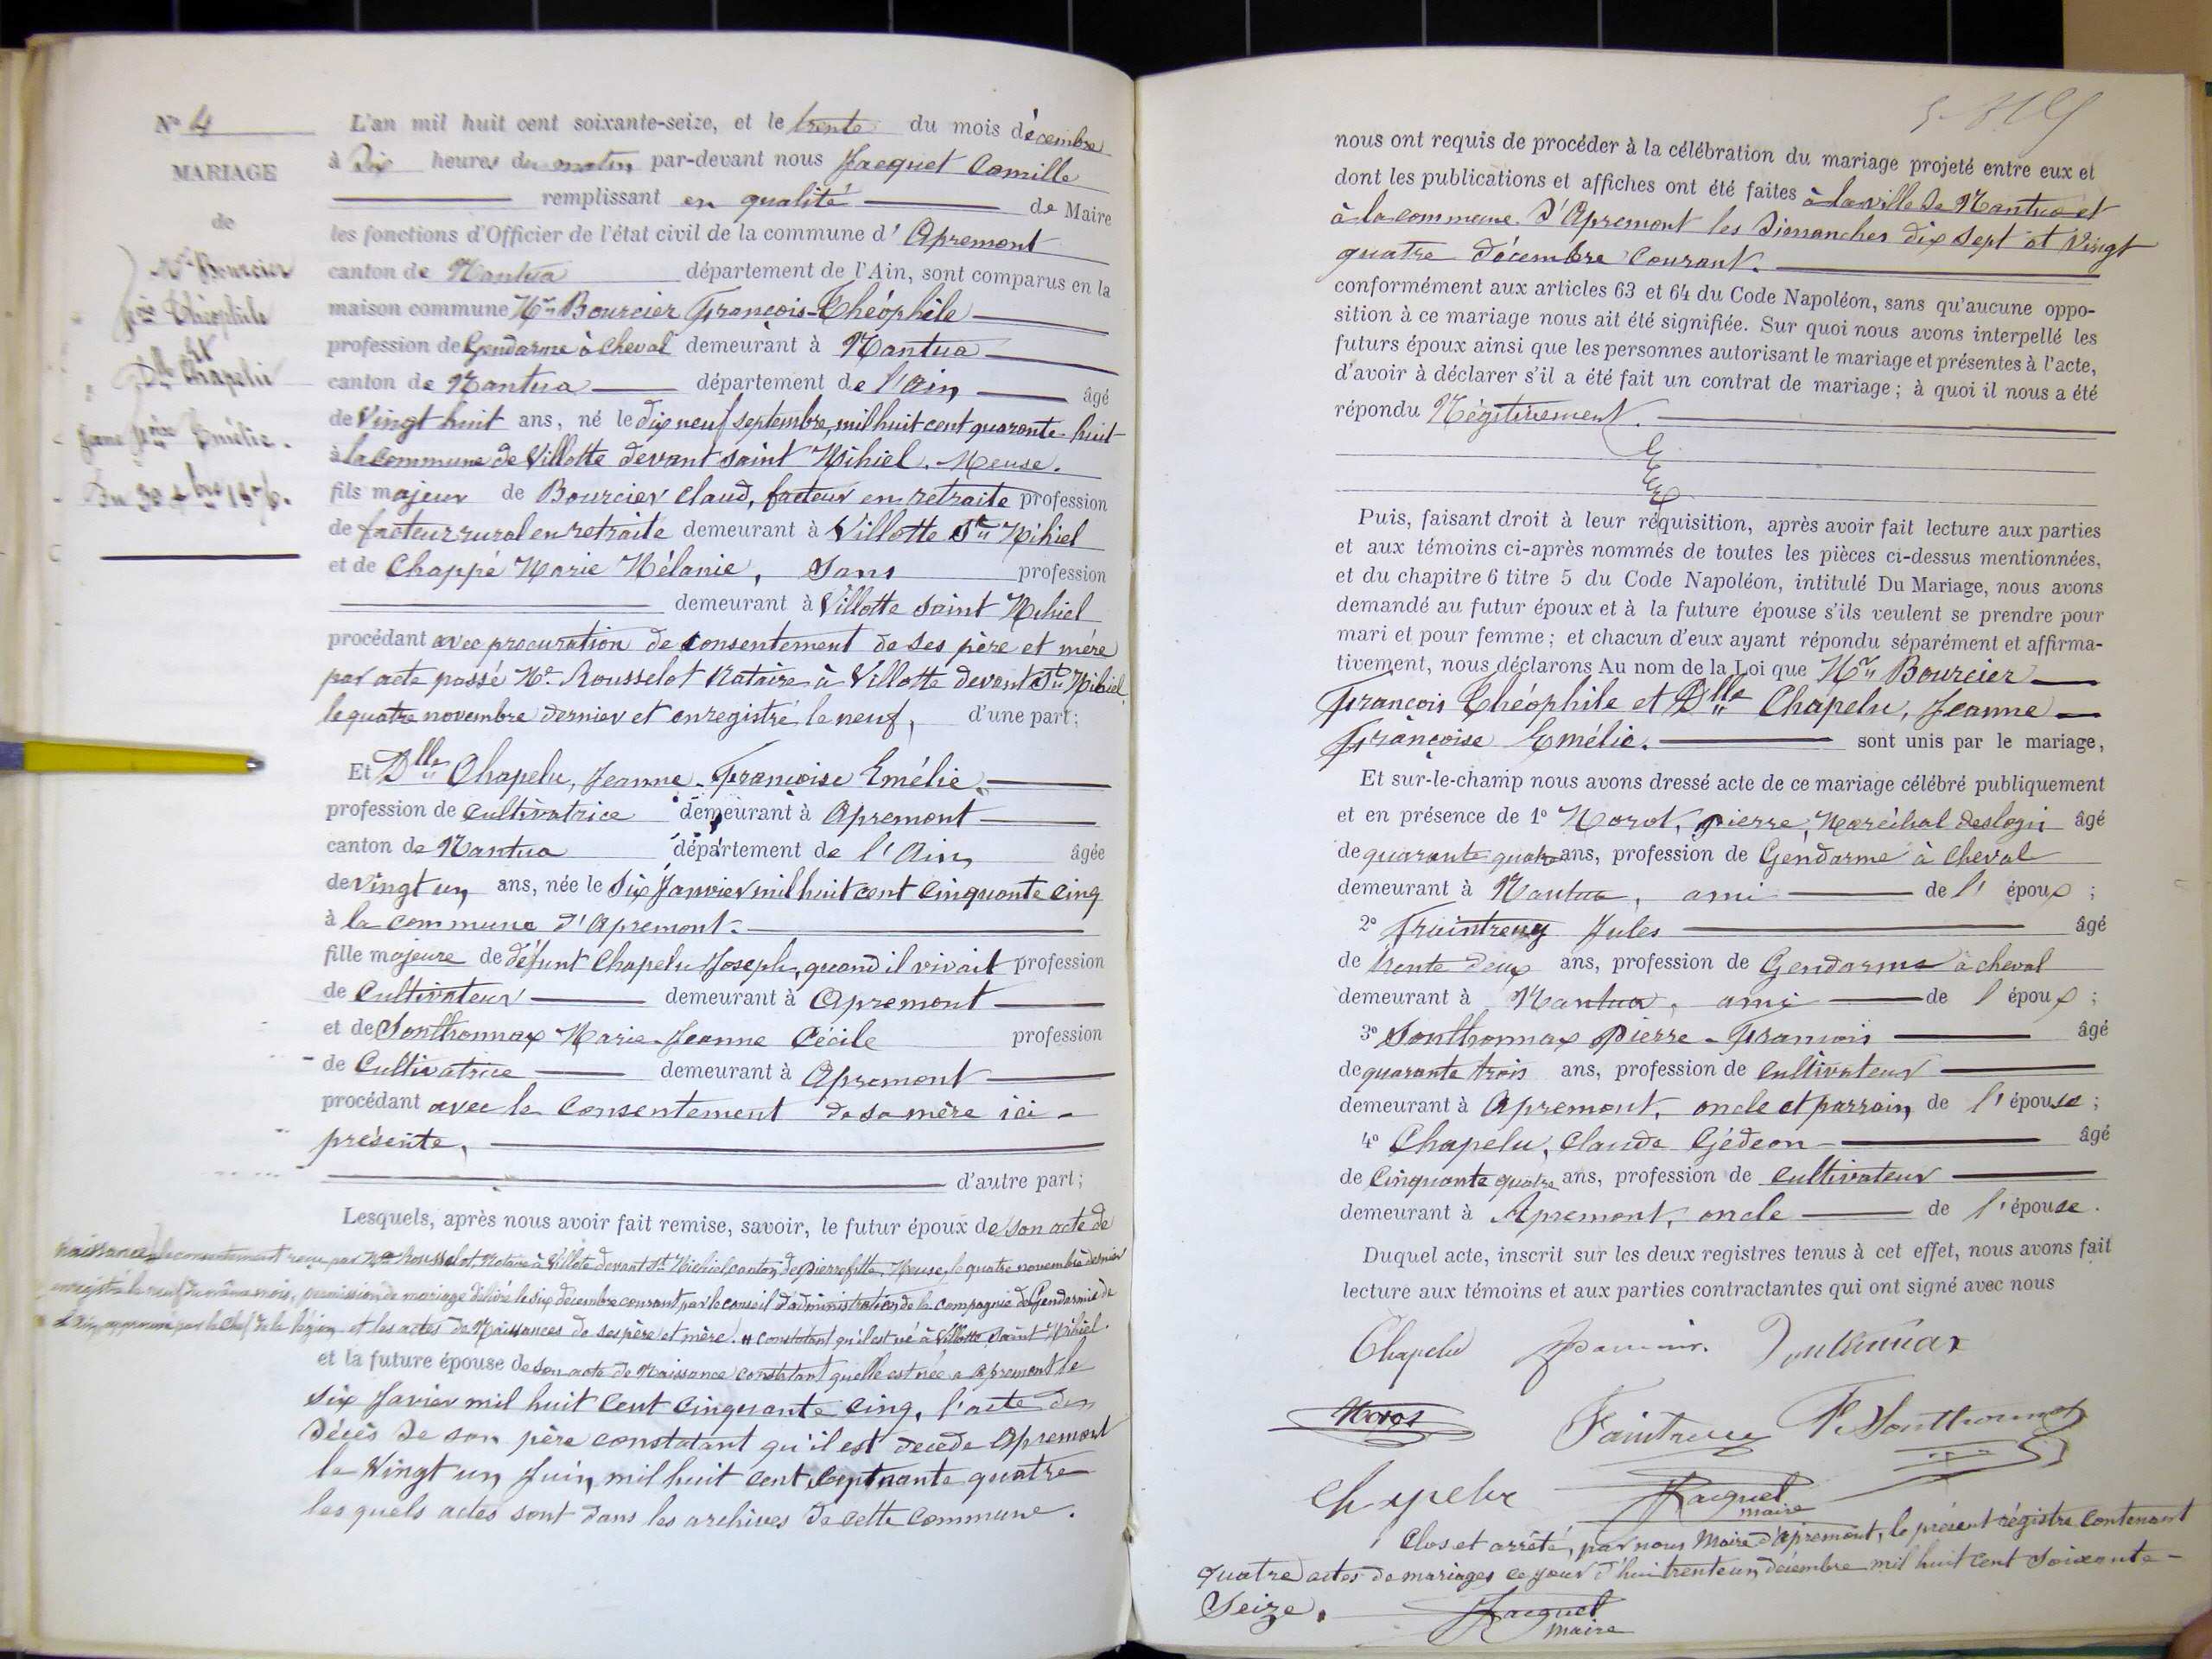 N° 4
MARIAGE
de
Mr Bourcier
çois Théophile
et
Dlle Chapelu
Jeane çoise Emélie.
Du 30 Xbre 1876.
L'an mil huit cent soixante-seize, et le trente du mois décembre
à Dix heures du matin, par-devant nous Jacquet Camille
remplissant en qualité de Maire
les fonctions d'Officier de l'état civil de la commune d' Apremont
canton de Nantua département de l'Ain, sont comparus en la
maison commune Mr Bourcier François-Théophile
profession de Gendarme à Cheval demeurant à Nantua
canton de Nantua département de l'Ain, âgé
de Vingt huit ans, né le dix neuf septembre, mil huit cent quarante-huit
à la commune de Villotte devant saint Mihiel. Meuse.
fils majeur de Bourcier Claud, facteur en retraite profession
de facteur rural en retraite demeurant à Villotte St Mihiel
et de Chappé Marie Mélanie, Sans profession
demeurant à Villotte saint Mihiel
procédant avec procuration de consentement de ses père et mère
par acte passé Me Rousselot Notaire à Villotte devant St Mihiel
le quatre novembre dernier et enregistré le neuf, d'une part;
Et Dlle Chapelu, Jeanne-Françoise Emélie.
profession de cultivatrice demeurant à Apremont
canton de Nantua département de l'Ain, âgée
de Vingt un, ans, née le Six Janvier mil huit cent cinquante cinq
à la commune d'Apremont.
fille majeure de défunt Chapelu Joseph, quand il vivait profession
de Cultivateur demeurant à Apremont
et de Sonthonnax Marie-Jeanne Cécile profession
de Cultivatrice demeurant à Apremont
procédant avec le consentement de sa mère ici-
présente,
d'autre part;
Lesquels, après nous avoir fait remise, savoir, le futur époux de son acte de
Naissance, le consentement reçu par Me Rousselot, Notaire à Villote devant St Mihiel canton de pierrefitte, Meuse, le quatre novembre dernier
enregistré le neuf du même mois, permission de mariage délivré le six décembre courant par le conseil d'administration de la compagnie de Gendarmerie de
l'Ain, approuvé par le Chef de la légion et les actes de Naissances de ses père et mère. constatant qu'il est né à Villotte Saint Mihiel.
et la future épouse de son acte de Naissance constatant quelle est née a Apremont le
six Javier mil huit cent cinquante cinq, l'acte du
décès de son père constatant qu'il est decede Apremont
le Vingt un Juin, mil huit cent septnante quatre
les quels actes sont dans les archives de cette commune.
nous ont requis de procéder à la célébration du mariage projeté entre eux et
dont les publications et affiches ont été faites à la ville de Nantua et
à la commune d'Apremont les Dimanches dix sept et Vingt
quatre décembre Courant.
conformément aux articles 63 et 64 du Code Napoléon, sans qu'aucune oppo-
sition à ce mariage nous ait été signifiée. Sur quoi nous avons interpellé les
futurs époux ainsi que les personnes autorisant le mariage et présentes à l'acte,
d'avoir à déclarer s'il a été fait un contrat de mariage; à quoi il nous a été
répondu Négitivement.
Puis, faisant droit à leur réquisition, après avoir fait lecture aux parties
et aux témoins ci-après nommés de toutes les pièces ci-dessus mentionnées,
et du chapitre 6 titre 5 du Code Napoléon, intitulé Du Mariage, nous avons
demandé au futur époux et à la future épouse s'ils veulent se prendre pour
mari et pour femme; et chacun d'eux ayant répondu séparément et affirma-
tivement, nous déclarons Au nom de la Loi que Mr Bourcier
François Théophile et Dlle Chapelu, Jeanne
Françoise Emélie. sont unis par le mariage,
Et sur-le-champ nous avons dressé acte de ce mariage célébré publiquement
et en présence de 1° Morot, pierre, Maréchal deslogis âgé
de quarante quatre ans, profession de Gendarme à Cheval
demeurant à Nantua, ami de l' époux ;
2° Fraintreny Jules âgé
de trente deux ans, profession de Gendarme à cheval
demeurant à Nantua, ami de l époux ;
3° Sonthonnax Pierre-François âgé
de quarante trois ans, profession de cultivateur
demeurant à Apremont, oncle et parrain, de l'épouse ;
4° Chapelu, Claude Gédeon âgé
de Cinquante quatre ans, profession de cultivateur
demeurant à Apremont, oncle de l'épouse.
Duquel acte, inscrit sur les deux registres tenus à cet effet, nous avons fait
lecture aux témoins et aux parties contractantes qui ont signé avec nous
Chapelu
Morot F. Sonthonnax
Chapelu Jacquet
maire
Clos et arrêté, par nous Maire d'Apremont, le présent régistre contenant
quatre actes de mariages ce jour d'hui trente un décembre mil huit cent soixante-
Seize.
Jacquet
maire